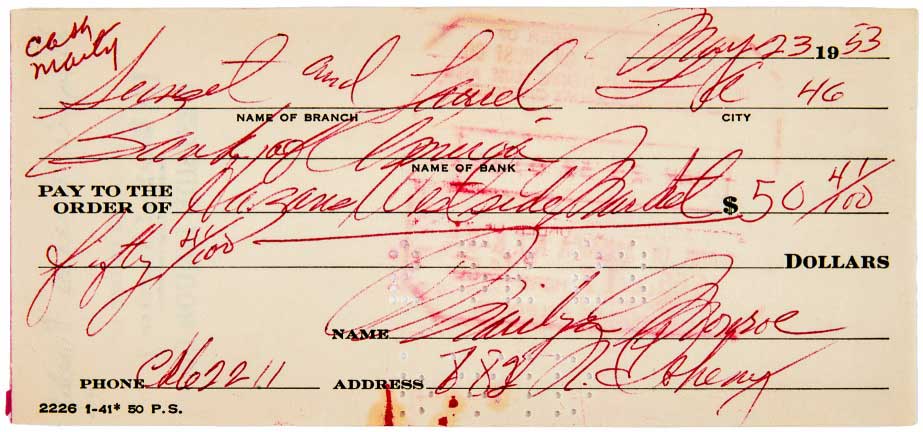 Cash
Marty
May 23 1953
Sunset and Laurel LA 46
NAME OF BRANCH CITY
Bank of America
NAME OF BANK
PAY TO THE
ORDER OF Westside Market $ 50 41/100
fifty 41/100 DOLLARS
NAME Marilyn Monroe
PHONE ADDRESS 882 N. Doheny
2226 1-41* 50 P.S.